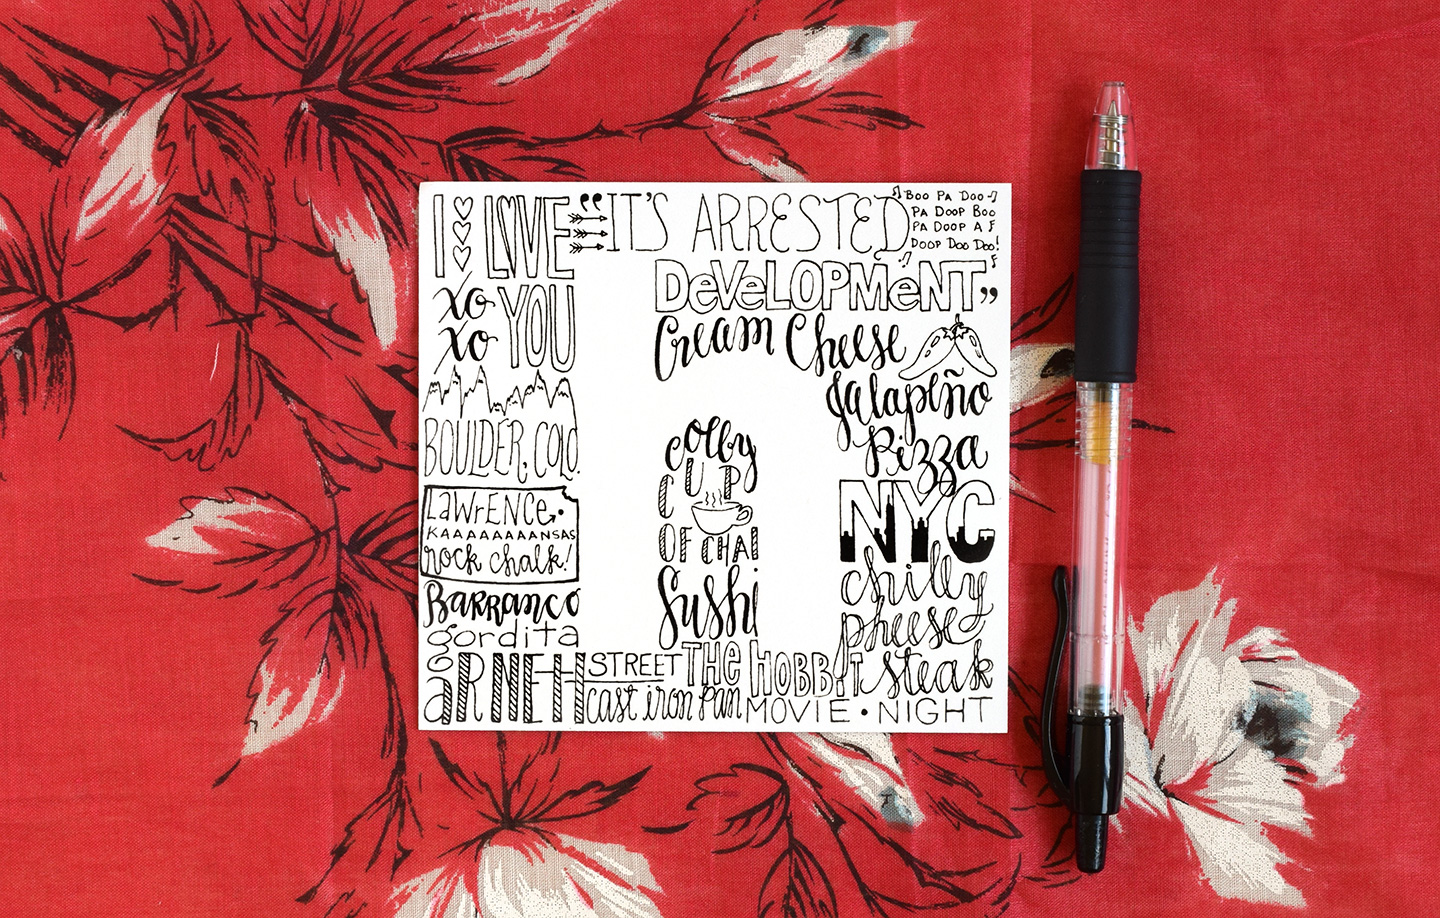 I LOVE
YOU
xo
xo
"IT'S ARRESTED
DEVELOPMENT"
BOO PA DOO
PA DOOP BOO
PA DOOP A
DOOP DOO DOO!
Cream Cheese
Jalapeño
Pizza
BOULDER, COLO.
LAWRENCE
KAAAAAAAAANSAS
rock chalk!
BARRANCO
gordita
colby
CUP
OF CHAI
Sushi
NYC
chilly
pheese
steak
ARNEH
STREET
cast iron pan
THE HOBBIT
MOVIE • NIGHT